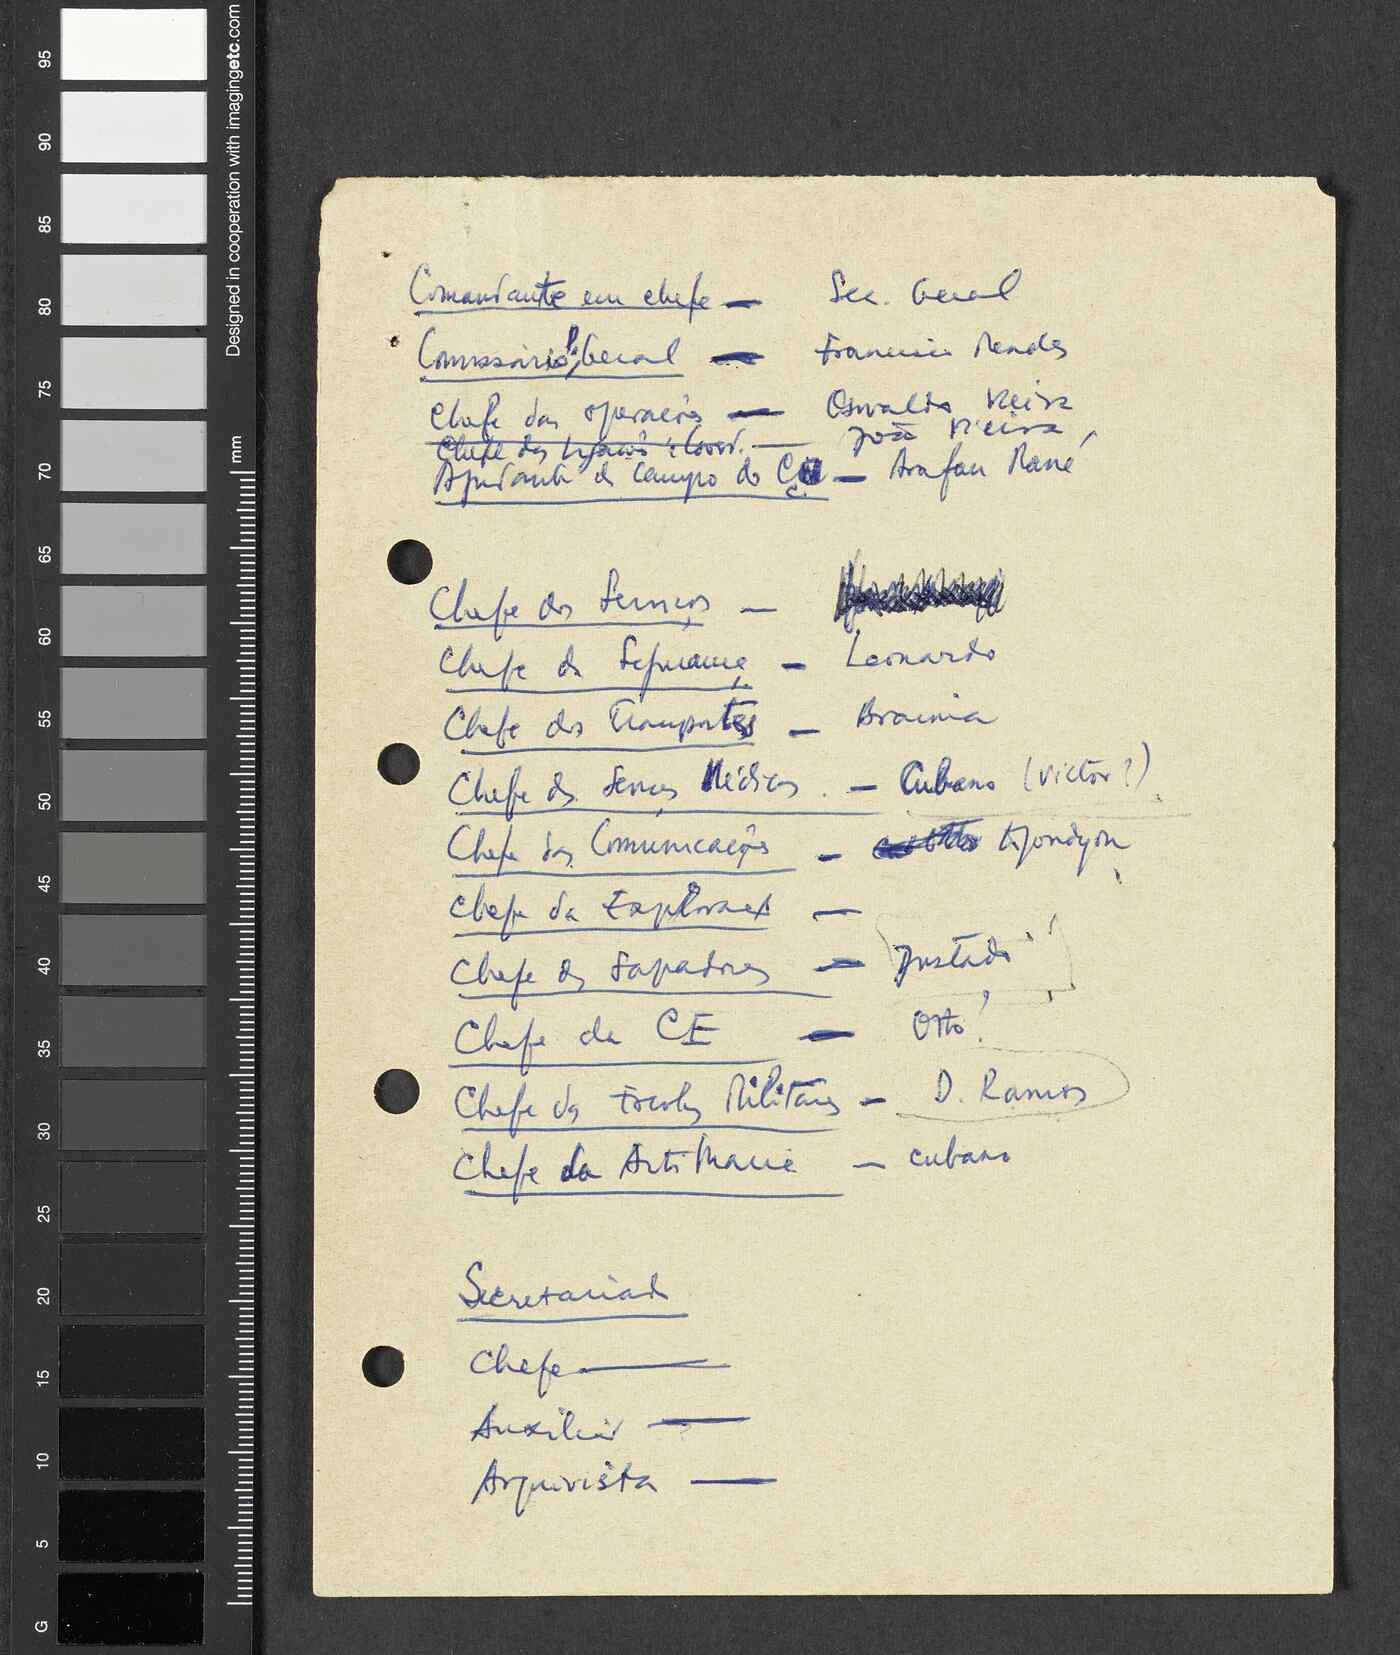 Comandante em chefe — Sec. Geral
Comissário P. Geral — Francisco Mendes
Chefe das operações — Osvaldo Vieira
Chefe das Ligações e Coord. — João Vieira
Ajudante de Campo do C.C. — Arafan Mané
Chefe dos Serviços —
Chefe da Segurança — Leonardo
Chefe dos Transportes — Braima
Chefe dos Serviços Médicos — Cubano (Victor?)
Chefe das Comunicações —
Chefe da Exploração —
Chefe dos Sapadores — Justado
Chefe da CE — Otto?
Chefe das Escolas Militares — D. Ramos
Chefe da Artilharia — cubano
Secretariado
Chefe —
Auxiliar —
Arquivista —
95
90
85
80
75
70
65
60
55
50
45
40
35
30
25
20
15
10
5
G
mm
Designed in cooperation with imagingetc.com